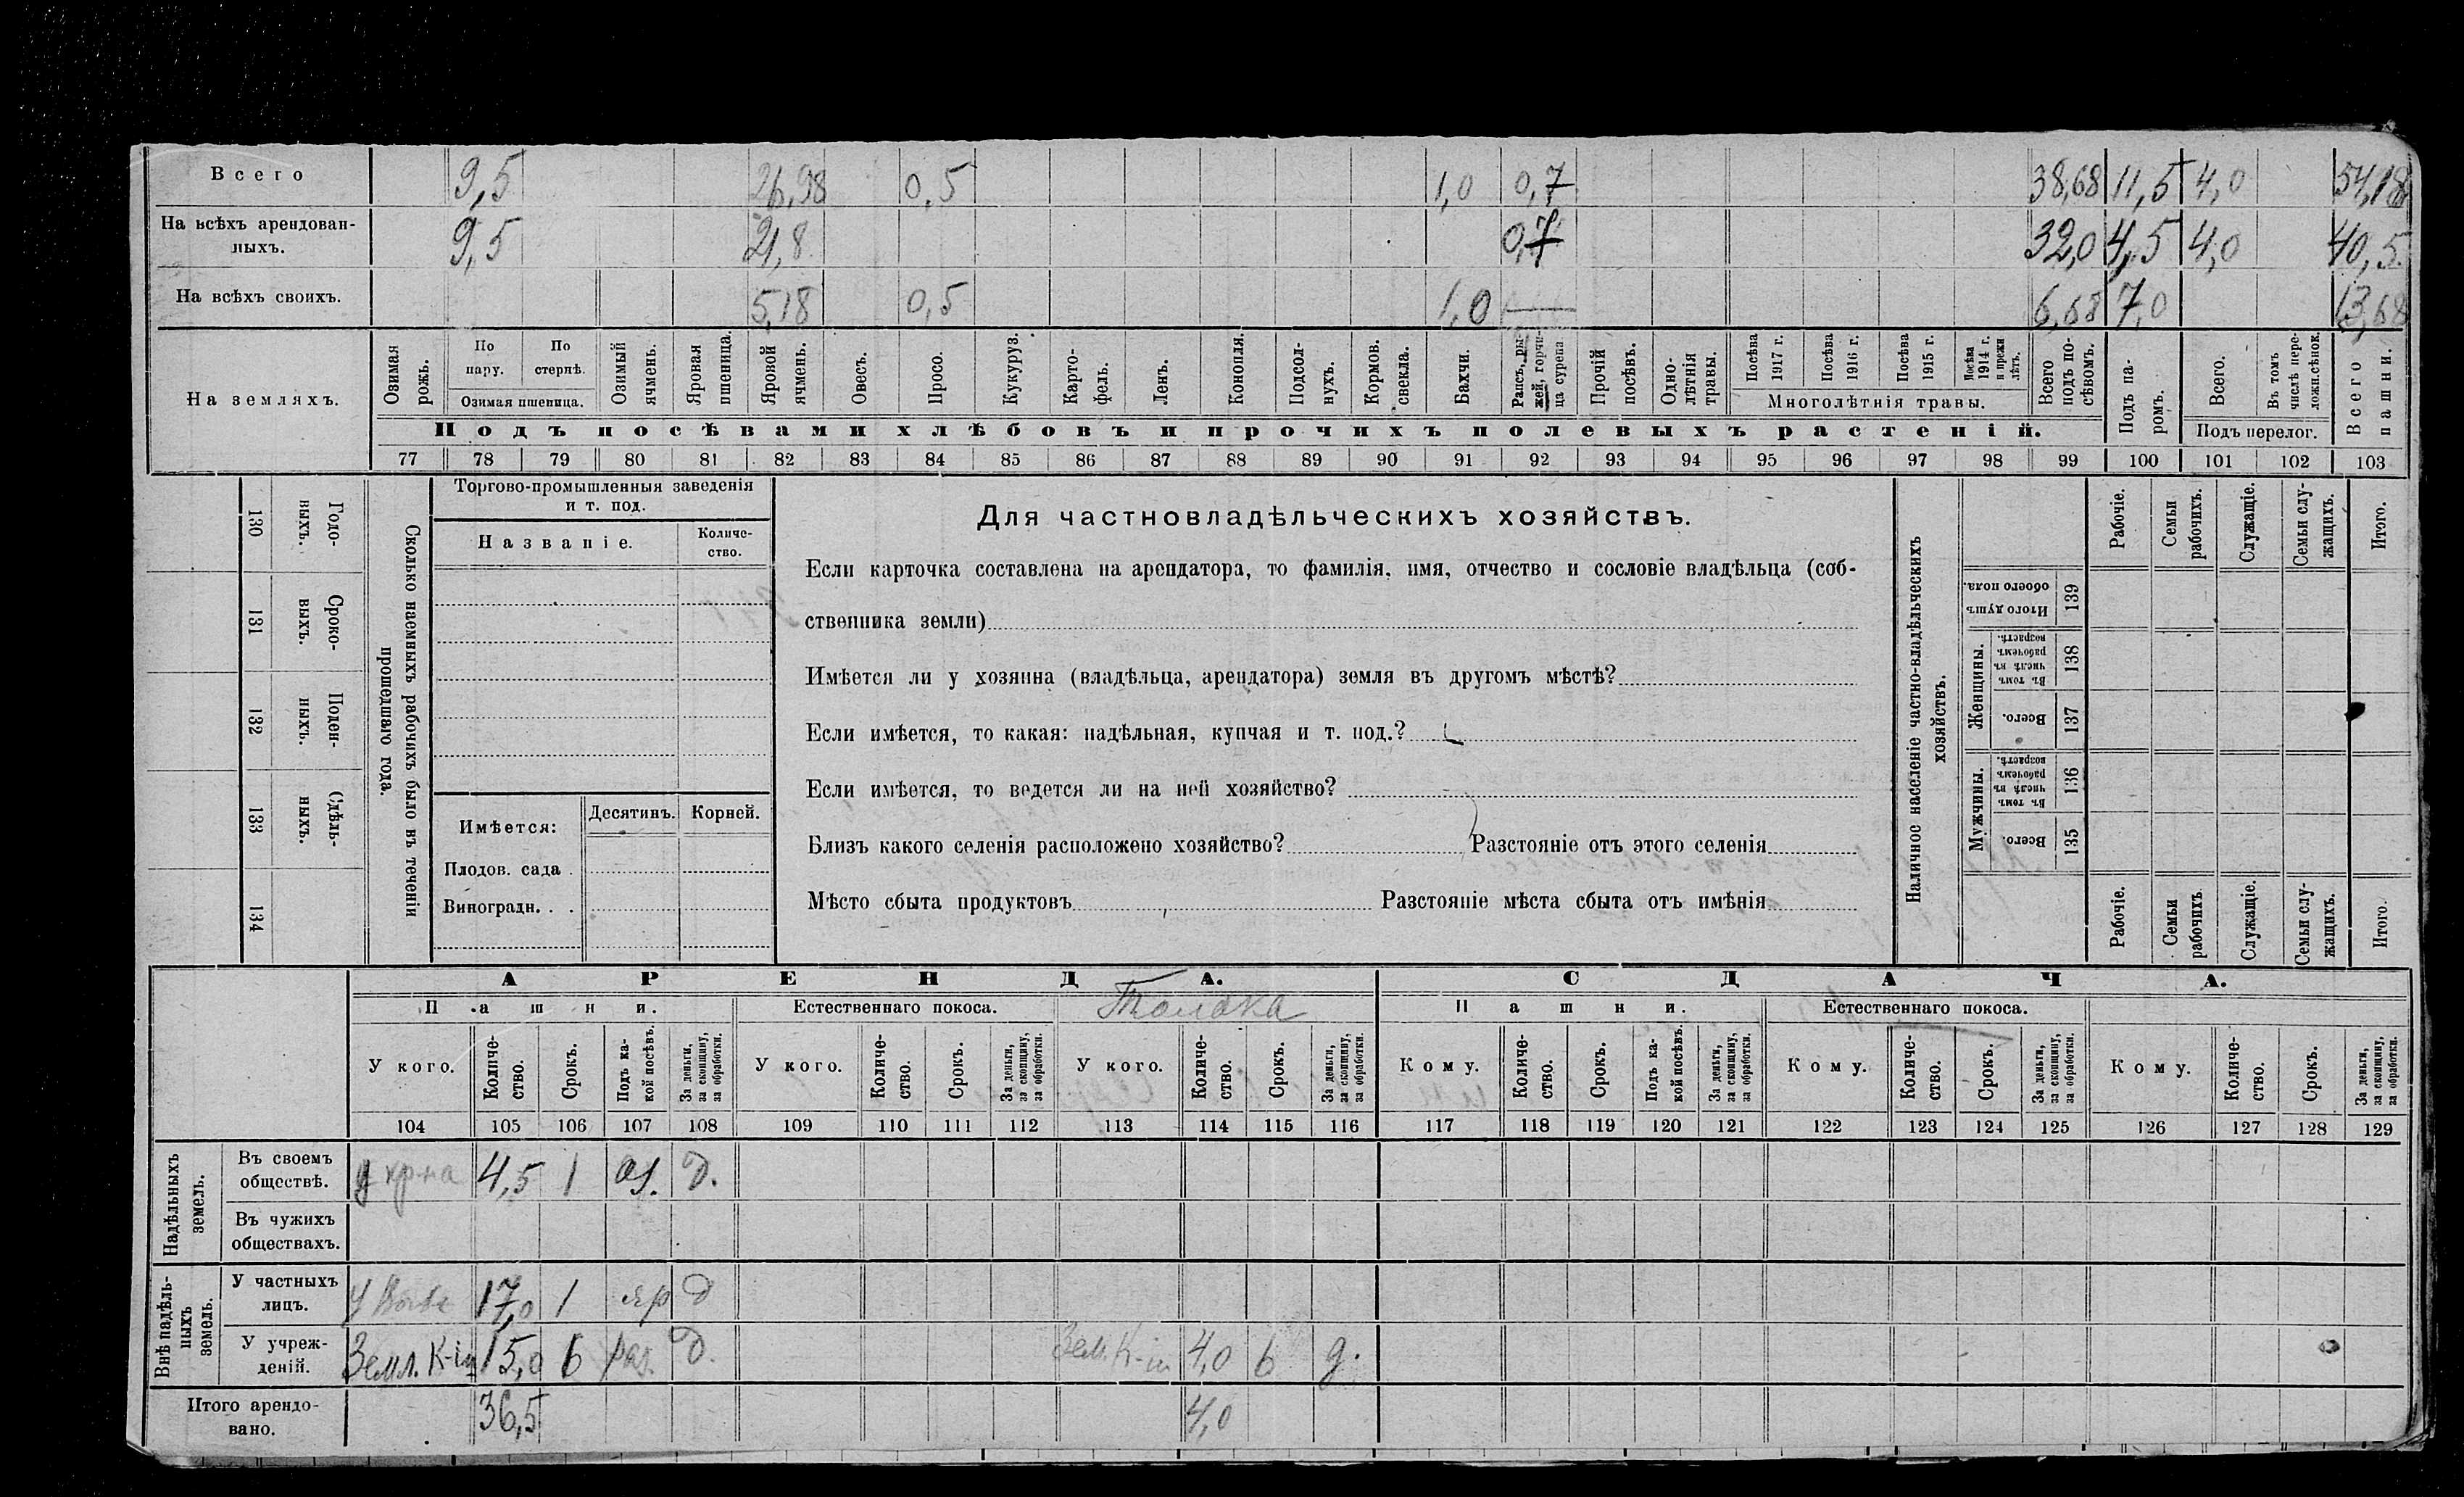 Всего 9,5 26,98 0,5 1,0 0,7 38,68 11,5 4,0 54,18
На всѣхъ арендован-
ныхъ. 9,5 21,8 0,7 32,0 4,5 4,0 40,5
На всѣхъ своихъ. 5,18 0,5 1,0 — 6,68 7,0 13,68
На земляхъ.
Озимая рожь.
По пару.
По стернѣ.
Озимая пшеница.
Озимый ячмень.
Яровая пшеница.
Яровой ячмень.
Овесъ.
Просо.
Кукуруз.
Карто-
фель.
Ленъ.
Конопля.
Подсол-
нухъ.
Кормов. свекла.
Бахчи.
Рапсъ, ры-
жей, горчи-
ца сурепа
Прочій посѣвъ.
Одно-
лѣтнія травы.
Посѣва 1917 г.
Посѣва 1916 г.
Посѣва 1915 г.
Посѣва 1914 г. и прежн лѣтъ.
Многолѣтнія травы.
Всего подъ по-
сѣвомъ.
Подъ па-
ромъ.
Всего.
Въ томъ числѣ пере-
ложн.сѣнок.
Подъ перелог.
Всего пашни.
Подъ посѣвами хлѣбовъ и прочихъ полевыхъ растеній.
77 78 79 80 81 82 83 84 85 86 87 88 89 90 91 92 93 94 95 96 97 98 99 100 101 102 103
130 Годо-
выхъ.
131 Сроко-
выхъ.
132 Поден-
ныхъ.
133 Сдѣль-
ныхъ.
134
Сколько наемныхъ рабочихъ было въ теченіи
прошедшаго года.
Торгово-промышленныя заведенія
и т. под.
Названіе.
Количе-
ство.
Имѣется:
Десятинъ.
Корней.
Плодов. сада .
Виноградн. . .
Для частновладѣльческихъ хозяйствъ.
Если карточка составлена на арендатора, то фамилія, имя, отчество и сословіе владѣльца (соб-
ственника земли)
Имѣется ли у хозяина (владѣльца, арендатора) земля въ другомъ мѣстѣ?
Если имѣется, то какая: надѣльная, купчая и т. под.?
Если имѣется, то ведется ли на ней хозяйство?
Близъ какого селенія расположено хозяйство? Разстояніе отъ этого селенія
Мѣсто сбыта продуктовъ Разстояніе мѣста сбыта отъ имѣнія
Наличное населеніе частно-владѣльческихъ
хозяйствъ.
Рабочіе.
Семьи рабочихъ.
Служащіе.
Семьи слу-
жащихъ.
Итого.
Итого душъ обоего пола. 139
Женщины.
Въ томъ числѣ въ рабочемъ возрастѣ. 138
Всего. 137
Мужчины.
Въ томъ числѣ въ рабочемъ возрастѣ. 136
Всего. 135
Рабочіе.
Семьи рабочихъ
Служащіе.
Семьи слу-
жащихъ.
Итого.
АРЕНДА. СДАЧА.
Пашни. Естественнаго покоса. Толока Пашни. Естественнаго покоса.
У кого. Количе-
ство. Срокъ. Подъ ка-
кой посѣвъ. За деньги, за скопщину, за обработки.
У кого. Количе-
ство. Срокъ. За деньги, за скопщину, за обработки.
У кого. Количе-
ство. Срокъ. За деньги, за скопщину, за обработки.
Кому. Количе-
ство. Срокъ. Подъ ка-
кой посѣвъ. За деньги, за скопщину, за обработки.
Кому. Количе-
ство. Срокъ. За деньги, за скопщину, за обработки.
Кому. Количе-
ство. Срокъ. За деньги, за скопщину, за обработки.
104 105 106 107 108 109 110 111 112 113 114 115 116 117 118 119 120 121 122 123 124 125 126 127 128 129
Надѣльныхъ земель.
Въ своемъ
обществѣ. у кр-на 4,5 1 оз. д.
Въ чужихъ
обществахъ.
Внѣ надѣль-
ныхъ земель.
У частныхъ
лицъ. 17,0 1 яр д
У учреж-
деній. Земл. К-іи 15,0 6 раз. д. Зем. К-іи 4,0 6 д.
Итого арендо-
вано. 36,5 4,0